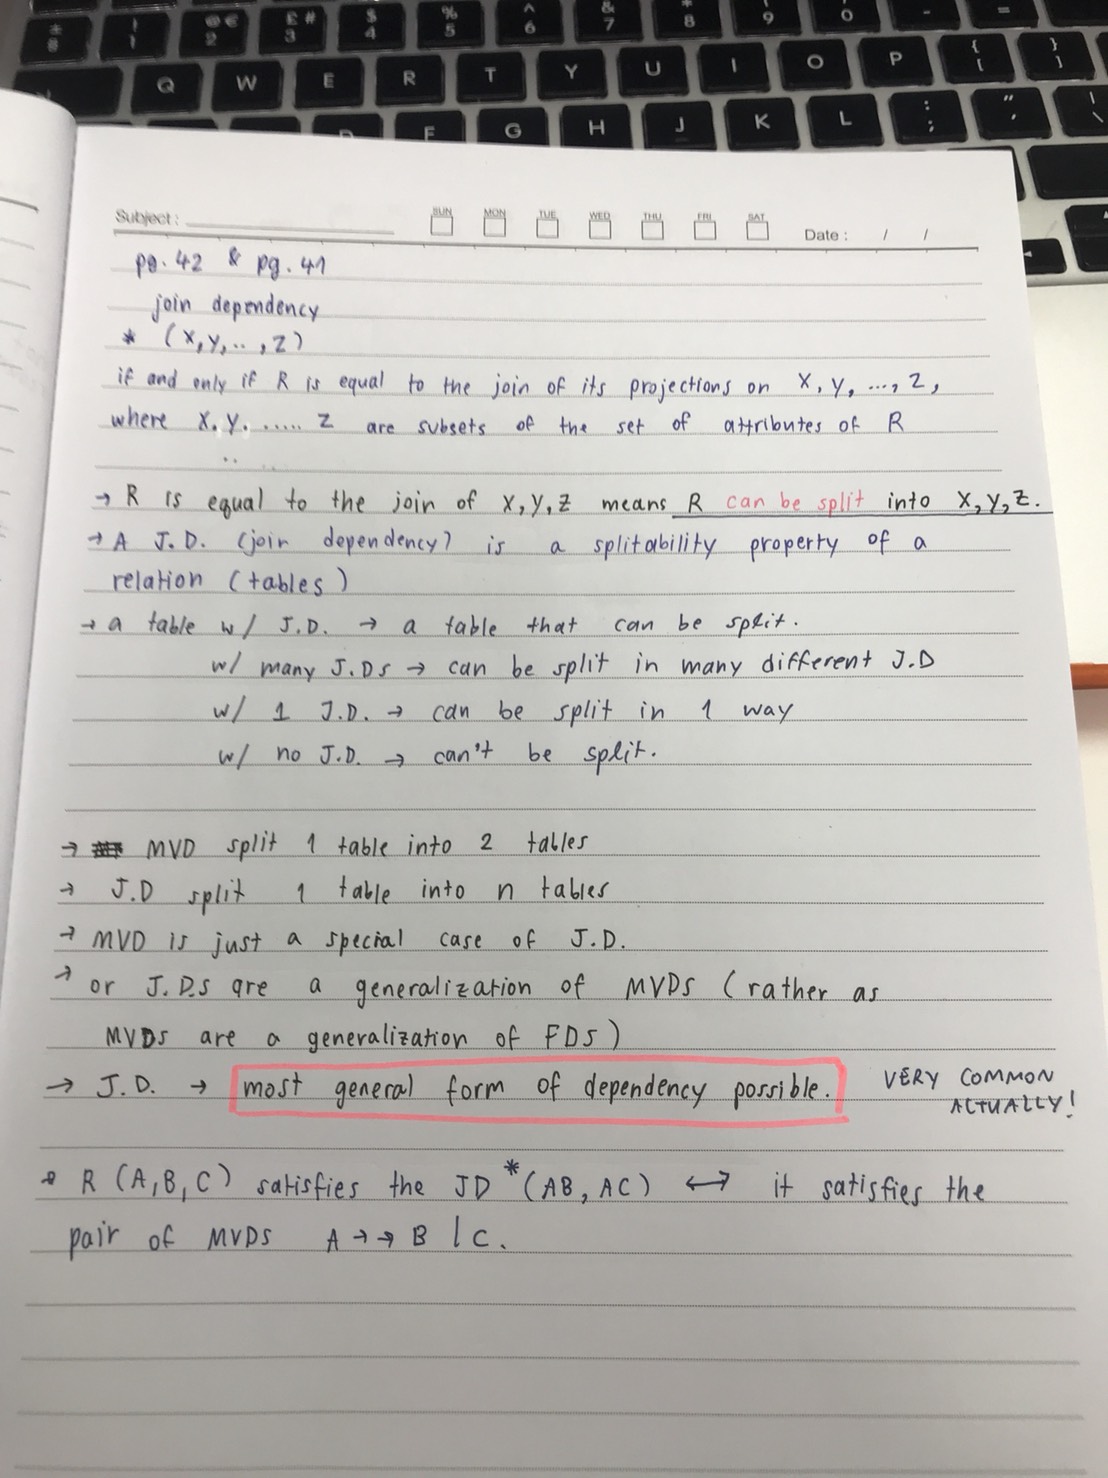 ± §
! 1
@ € 2
£ # 3
$ 4
% 5
^ 6
& 7
* 8
9
0
-
=
Q W E R T Y U I O P { [ } ]
F G H J K L : ; "
Subject : SUN MON TUE WED THU FRI SAT Date : / /
pg. 42 & pg. 41
join dependency
* (X, Y, .. , Z)
if and only if R is equal to the join of its projections on X, Y, ..., Z,
where X. Y. ..... Z are subsets of the set of attributes of R
→ R is equal to the join of X, Y, Z means R can be split into X, Y, Z.
→ A J.D. (join dependency) is a splitability property of a
relation (tables)
→ a table w/ J.D. → a table that can be split.
w/ many J.Ds → can be split in many different J.D
w/ 1 J.D. → can be split in 1 way
w/ no J.D. → can't be split.
→ MVD split 1 table into 2 tables
→ J.D split 1 table into n tables
→ MVD is just a special case of J.D.
→ or J.Ds are a generalization of MVDs (rather as
MVDs are a generalization of FDs)
→ J.D. → most general form of dependency possible. VERY COMMON
ACTUALLY!
R (A, B, C) satisfies the JD *(AB, AC) ↔ it satisfies the
pair of MVDs A →→ B | C.